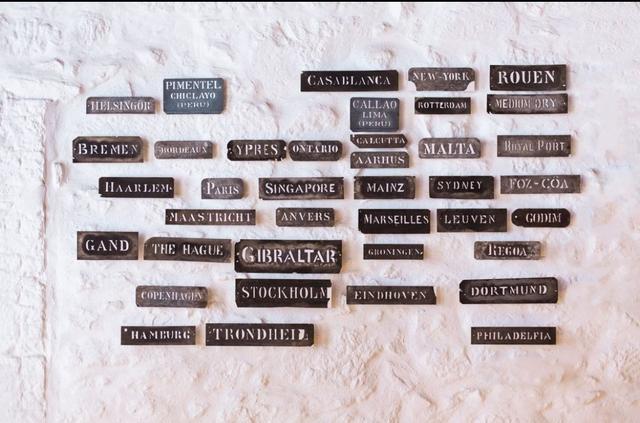 CASABLANCA
NEW-YORK
ROUEN
PIMENTEL
CHICLAYO
(PERU)
HELSINGÖR
CALLAO
LIMA
(PERU)
ROTTERDAM
MEDIUM DRY
BREMEN
BORDEAUX
YPRES
ONTARIO
CALCUTTA
AARHUS
MALTA
ROYAL PORT
HAARLEM
PARIS
SINGAPORE
MAINZ
SYDNEY
FOZ-CÔA
MAASTRICHT
ANVERS
MARSEILLES
LEUVEN
GODIM
GAND
THE HAGUE
GIBRALTAR
GRONINGEN
REGOA
COPENHAGEN
STOCKHOLM
EINDHOVEN
DORTMUND
HAMBURG
TRONDHEIL
PHILADELFIA